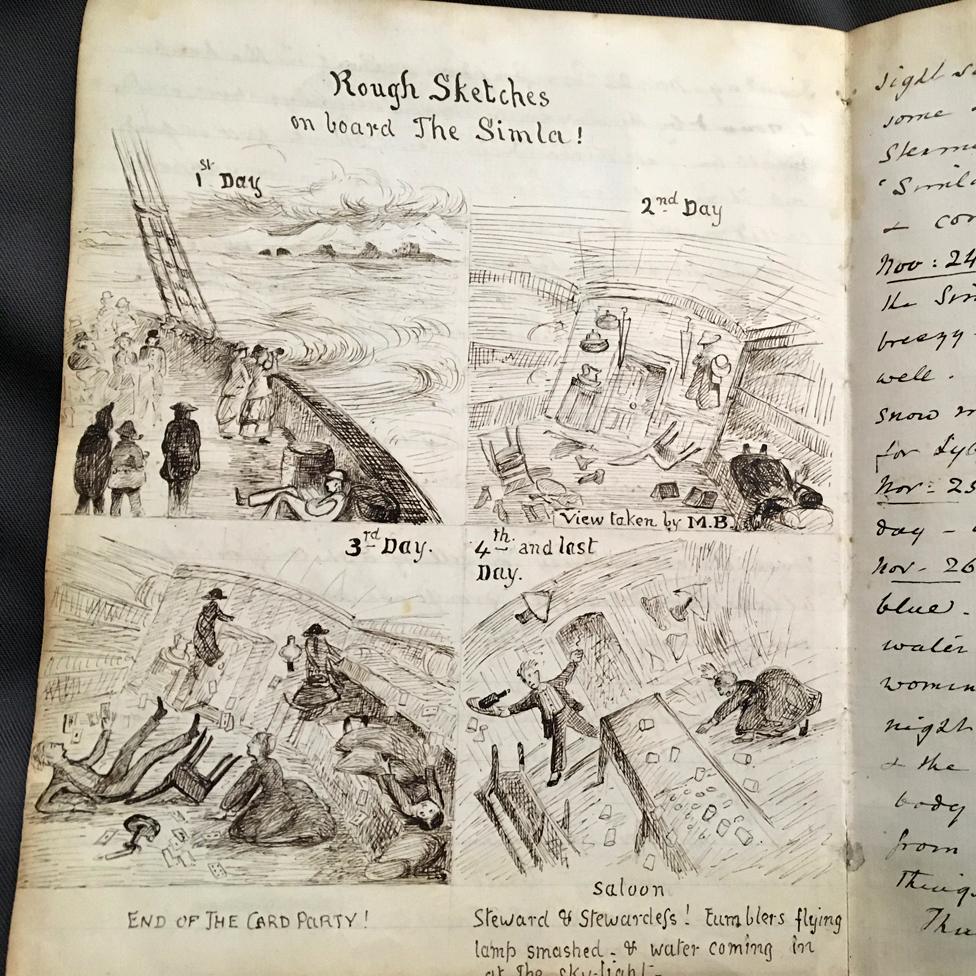 Rough Sketches
on board The Simla!
1st Day
2nd Day
View taken by M.B.
3rd Day.
4th. and last
Day.
END OF THE CARD PARTY!
Saloon
Steward & Stewardess! tumblers flying
lamp smashed - & water coming in
at the sky-light -
sight
some
Steam
'Simla
& con
Nov: 24
the Sim
breezy
well.
snow
for
Nov: 25
day -
Nov - 26
blue -
water
night
& the
body
from